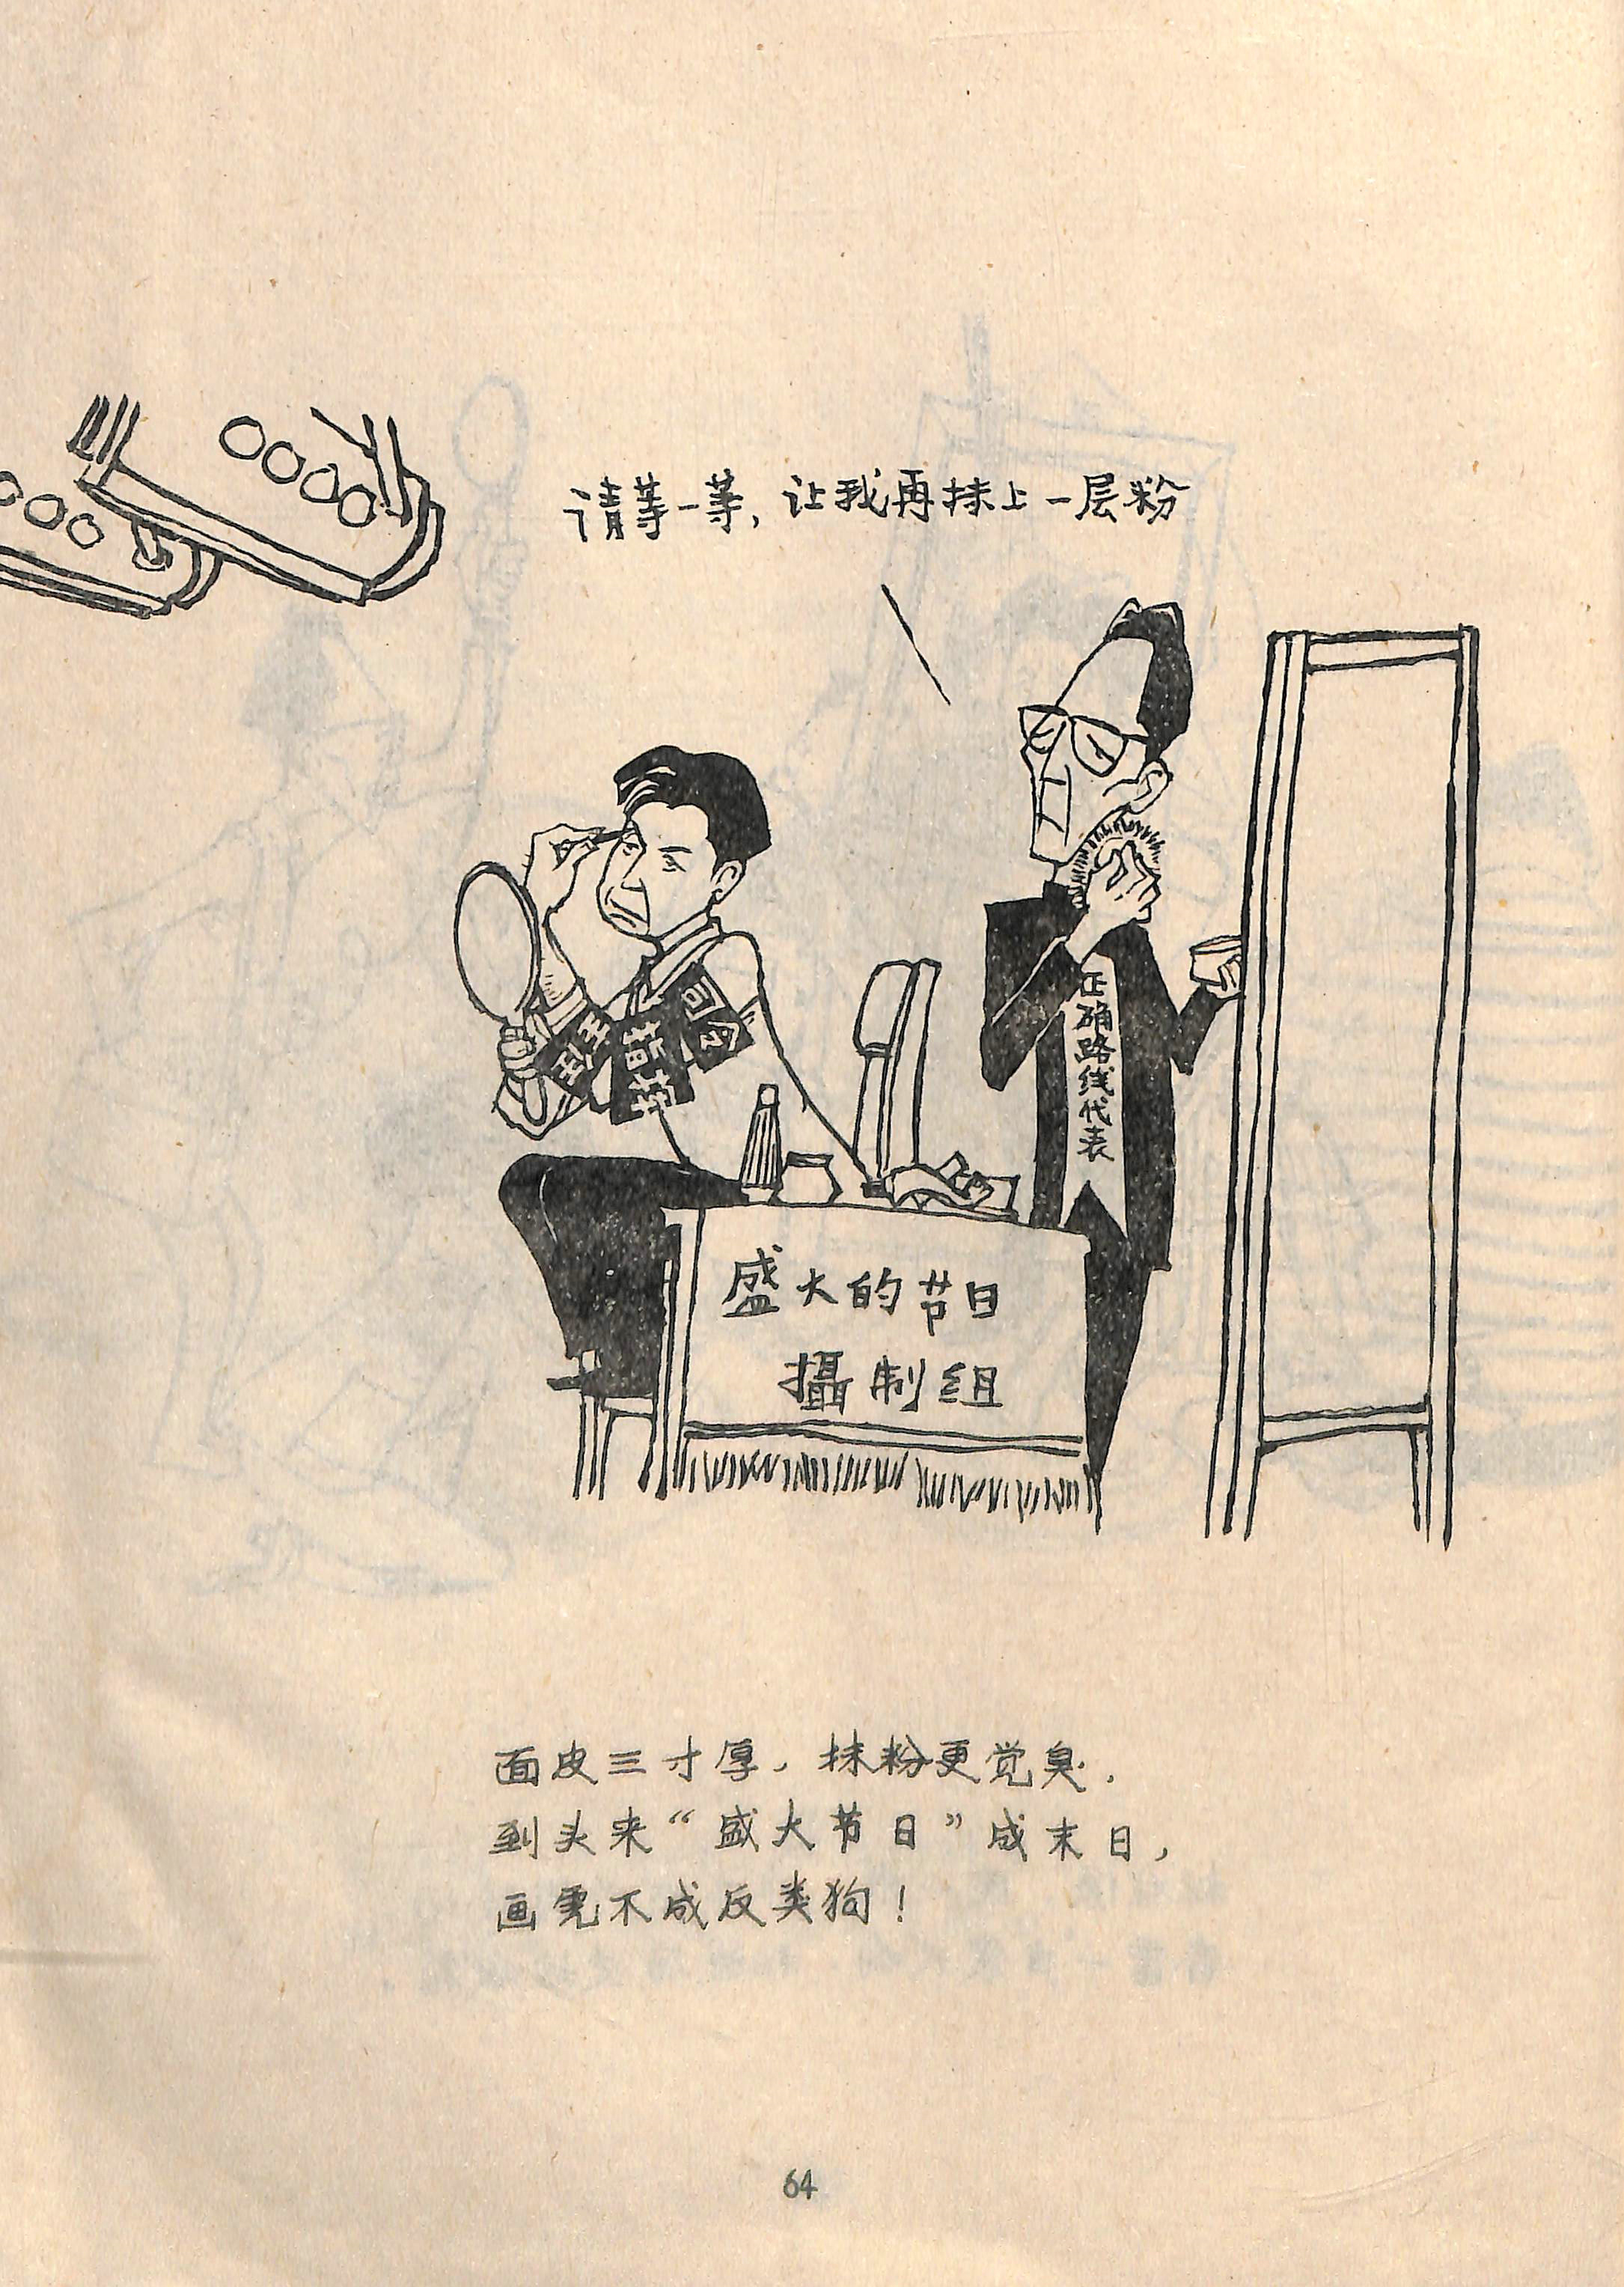 请等一等，让我再抹上一层粉
司令
指挥
主任
正确路线代表
盛大的节日
攝制组
面皮三寸厚，抹粉更觉臭，
到头来“盛大节日”成末日，
画虎不成反类狗！
64